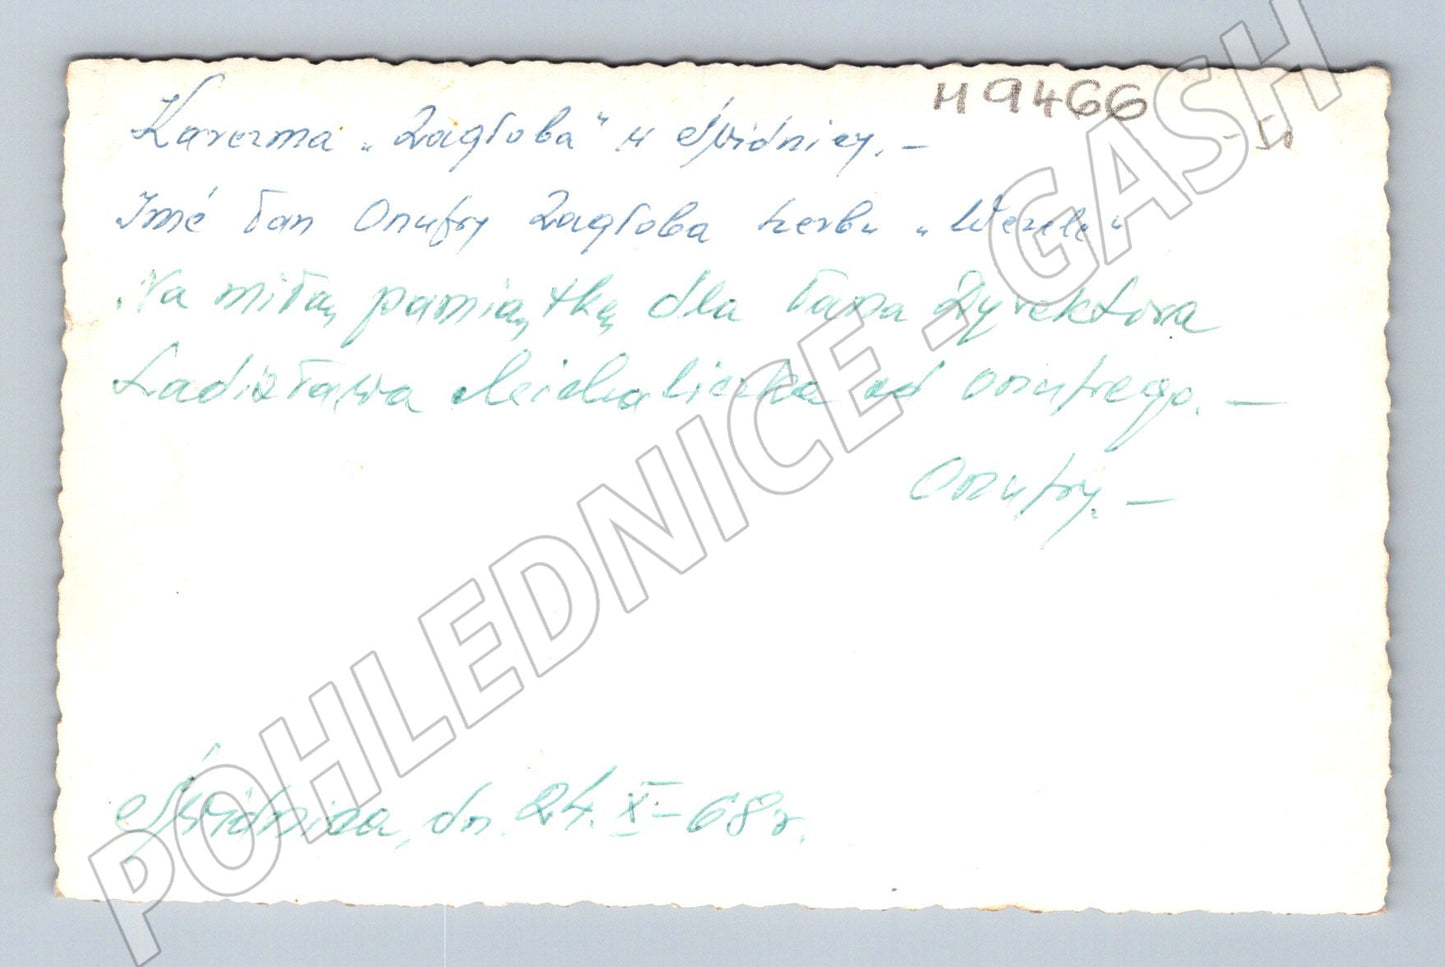 H 9466
- 50
Karczma „Zagłoba" w Świdnicy. -
Imć Pan Onufry Zagłoba herbu „Wczele"
Na miłą pamiątkę dla Pana Dyrektora
Ladisława Michaliczka od Onufrego. -
Onufry. -
Świdnica, dn. 24. X - 68 r.
POHLEDNICE - GASH